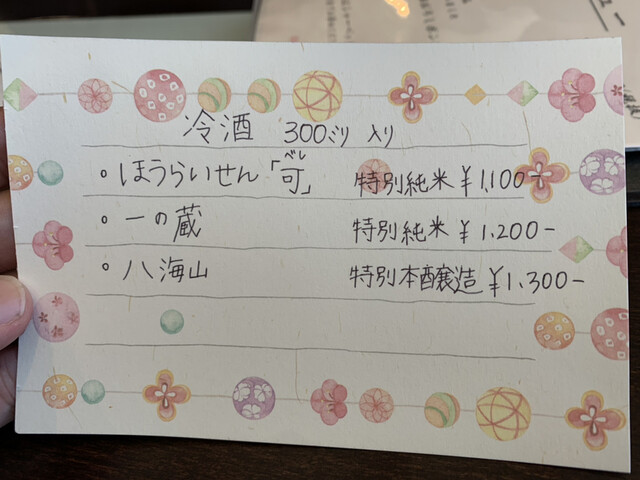 冷酒 300ミリ入り
。ほうらいせん「可」 特別純米 ¥1,100-
べし
。一の蔵 特別純米 ¥1,200-
。八海山 特別本醸造 ¥1,300-